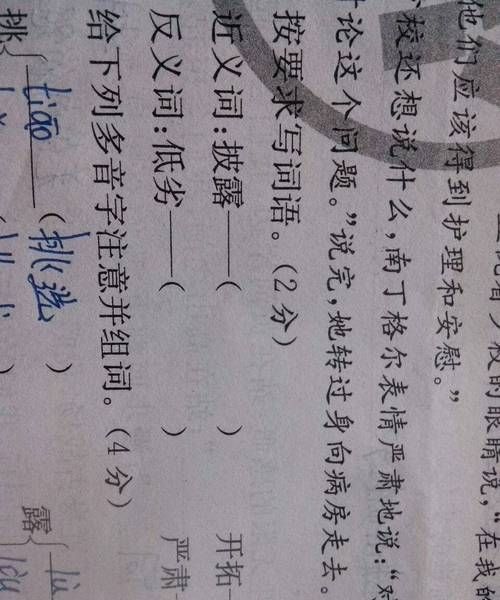 着少校的眼睛说,“在我的
他们应该得到护理和安慰。”
校还想说什么,南丁格尔表情严肃地说:“对
讨论这个问题。”说完,她转过身向病房走去。
按要求写词语。(2分)
近义词:披露——( ) 开拓—
反义词:低劣——( ) 严肃—
给下列多音字注意并组词。(4分)
挑{ tiāo (挑选) 露{ lù